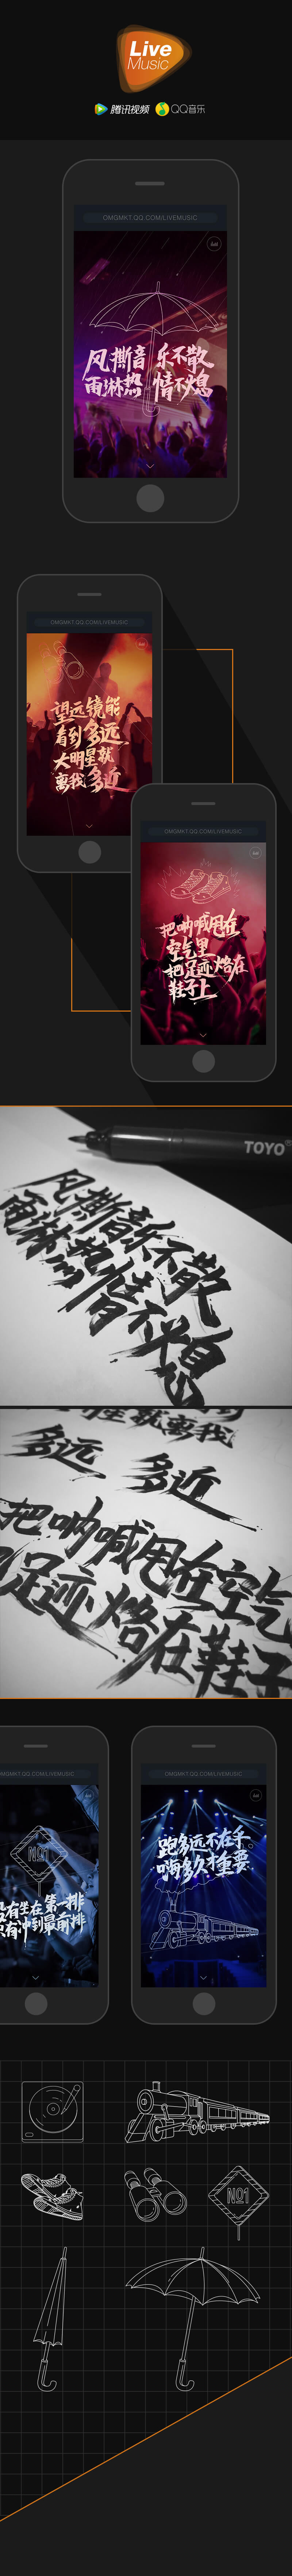 Live
Music
腾讯视频 QQ音乐
OMGMKT.QQ.COM/LIVEMUSIC
风撕音乐不散
雨淋热情不息
OMGMKT.QQ.COM/LIVEMUSIC
望远镜能
看到多远
大明星就
离我多近
OMGMKT.QQ.COM/LIVEMUSIC
把呐喊甩在
空气里
把足迹烙在
鞋子上
TOYO
风撕音乐不散
雨淋热情不息
星就离我
多远 多近
把呐喊甩在空气
足迹烙在鞋子
OMGMKT.QQ.COM/LIVEMUSIC
OMGMKT.QQ.COM/LIVEMUSIC
Nº1
没有坐在第一排
只有冲到最前排
跑多远不在乎
嗨多久才重要
Nº1